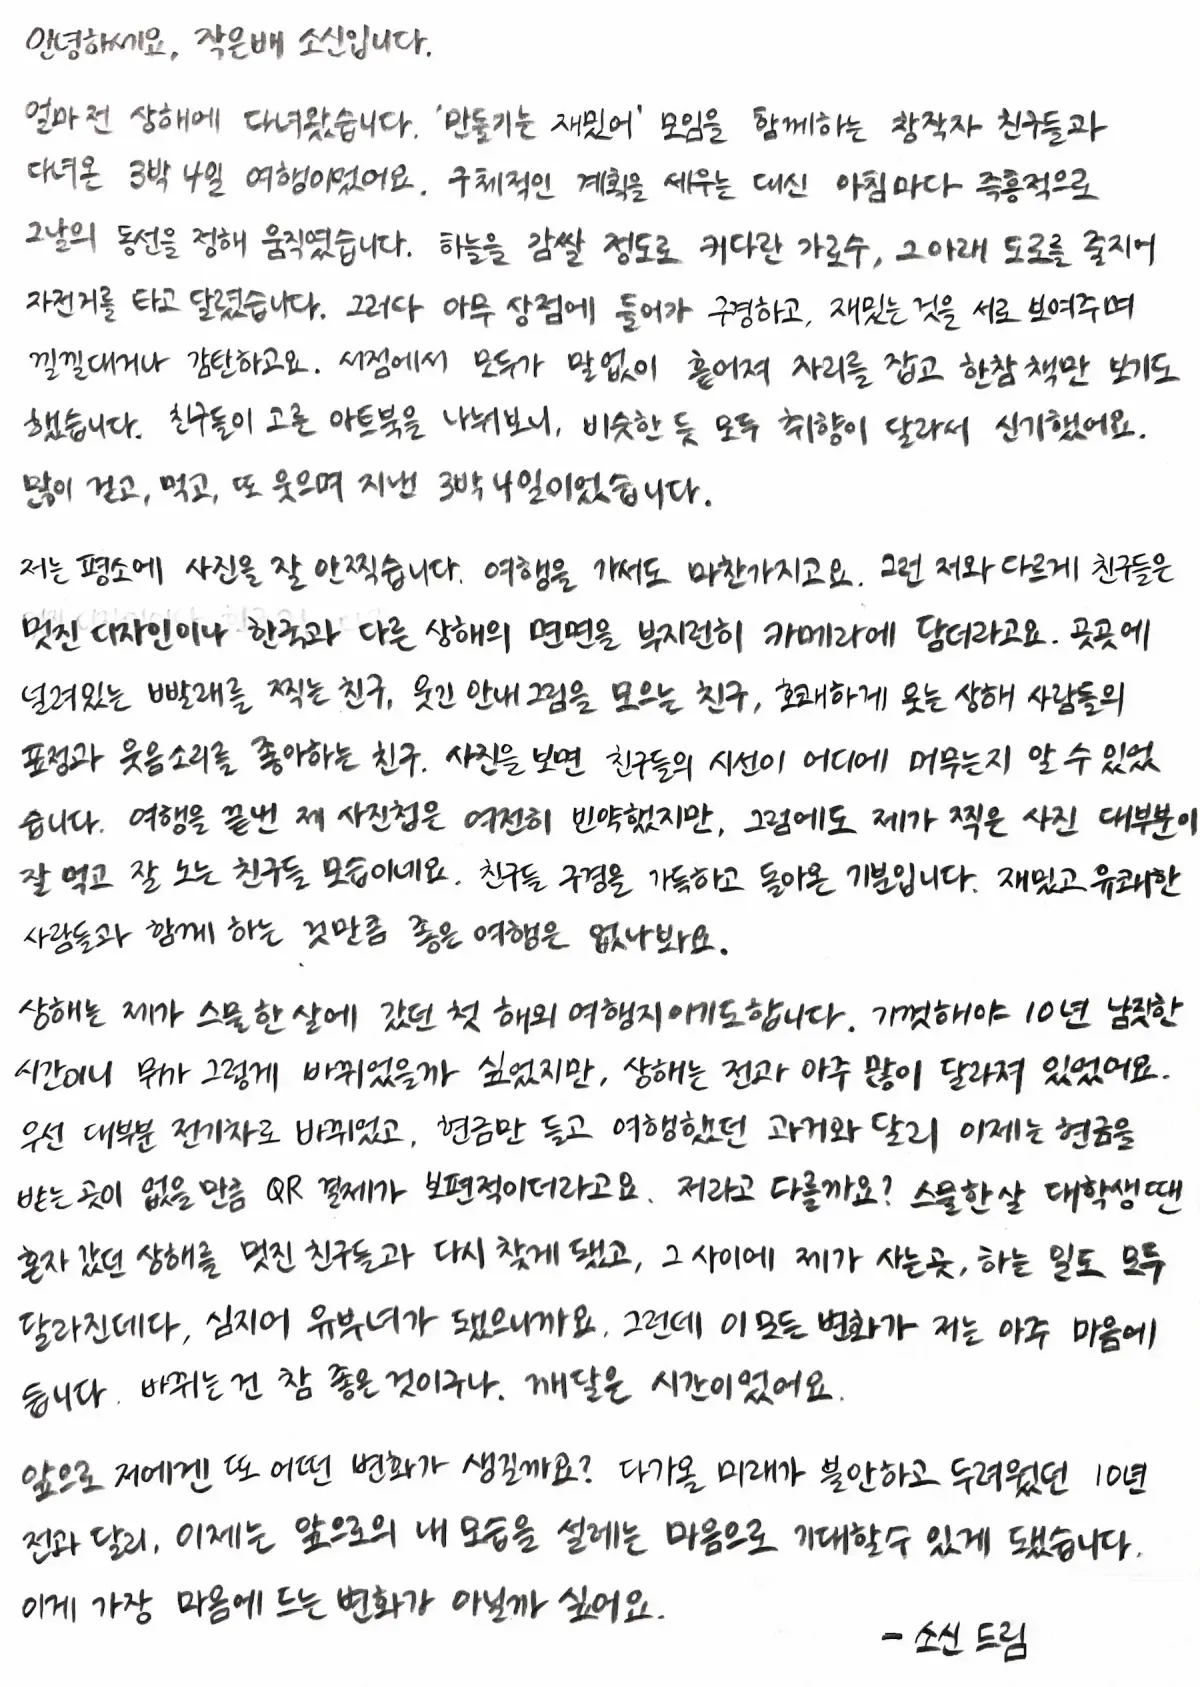 안녕하세요, 작은배 소신입니다.
얼마 전 상해에 다녀왔습니다. '만들기는 재밌어' 모임을 함께하는 창작자 친구들과
다녀온 3박 4일 여행이었어요. 구체적인 계획을 세우는 대신 아침마다 즉흥적으로
그날의 동선을 정해 움직였습니다. 하늘을 감쌀 정도로 커다란 가로수, 그 아래 도로를 줄지어
자전거를 타고 달렸습니다. 그러다 아무 상점에 들어가 구경하고, 재밌는 것을 서로 보여주며
낄낄대거나 감탄하고요. 서점에서 모두가 말없이 흩어져 자리를 잡고 한참 책만 보기도
했습니다. 친구들이 고른 아트북을 나눠보니, 비슷한 듯 모두 취향이 달라서 신기했어요.
많이 걷고, 먹고, 또 웃으며 지낸 3박 4일이었습니다.
저는 평소에 사진을 잘 안찍습니다. 여행을 가서도 마찬가지고요. 그런 저와 다르게 친구들은
멋진 디자인이나 한국과 다른 상해의 면면을 부지런히 카메라에 담더라고요. 곳곳에
널려있는 빨래를 찍는 친구, 웃긴 안내그림을 모으는 친구, 호쾌하게 웃는 상해 사람들의
표정과 웃음소리를 좋아하는 친구. 사진을 보면 친구들의 시선이 어디에 머무는지 알 수 있었
습니다. 여행을 끝낸 제 사진첩은 여전히 빈약했지만, 그럼에도 제가 찍은 사진 대부분이
잘 먹고 잘 노는 친구들 모습이네요. 친구들 구경을 가득하고 돌아온 기분입니다. 재밌고 유쾌한
사람들과 함께 하는 것만큼 좋은 여행은 없나봐요.
상해는 제가 스물한 살에 갔던 첫 해외 여행지이기도합니다. 기껏해야 10년 남짓한
시간이니 뭐가 그렇게 바뀌었을까 싶었지만, 상해는 전과 아주 많이 달라져 있었어요.
우선 대부분 전기차로 바뀌었고, 현금만 들고 여행했던 과거와 달리 이제는 현금을
받는 곳이 없을 만큼 QR 결제가 보편적이더라고요. 저라고 다를까요? 스물한살 대학생 땐
혼자 갔던 상해를 멋진 친구들과 다시 찾게 됐고, 그 사이에 제가 사는 곳, 하는 일도 모두
달라진데다, 심지어 유부녀가 됐으니까요. 그런데 이 모든 변화가 저는 아주 마음에
듭니다. 바뀌는 건 참 좋은 것이구나. 깨달은 시간이었어요.
앞으로 저에겐 또 어떤 변화가 생길까요? 다가올 미래가 불안하고 두려웠던 10년
전과 달리, 이제는 앞으로의 내 모습을 설레는 마음으로 기대할 수 있게 됐습니다.
이게 가장 마음에 드는 변화가 아닐까 싶어요.
- 소신 드림